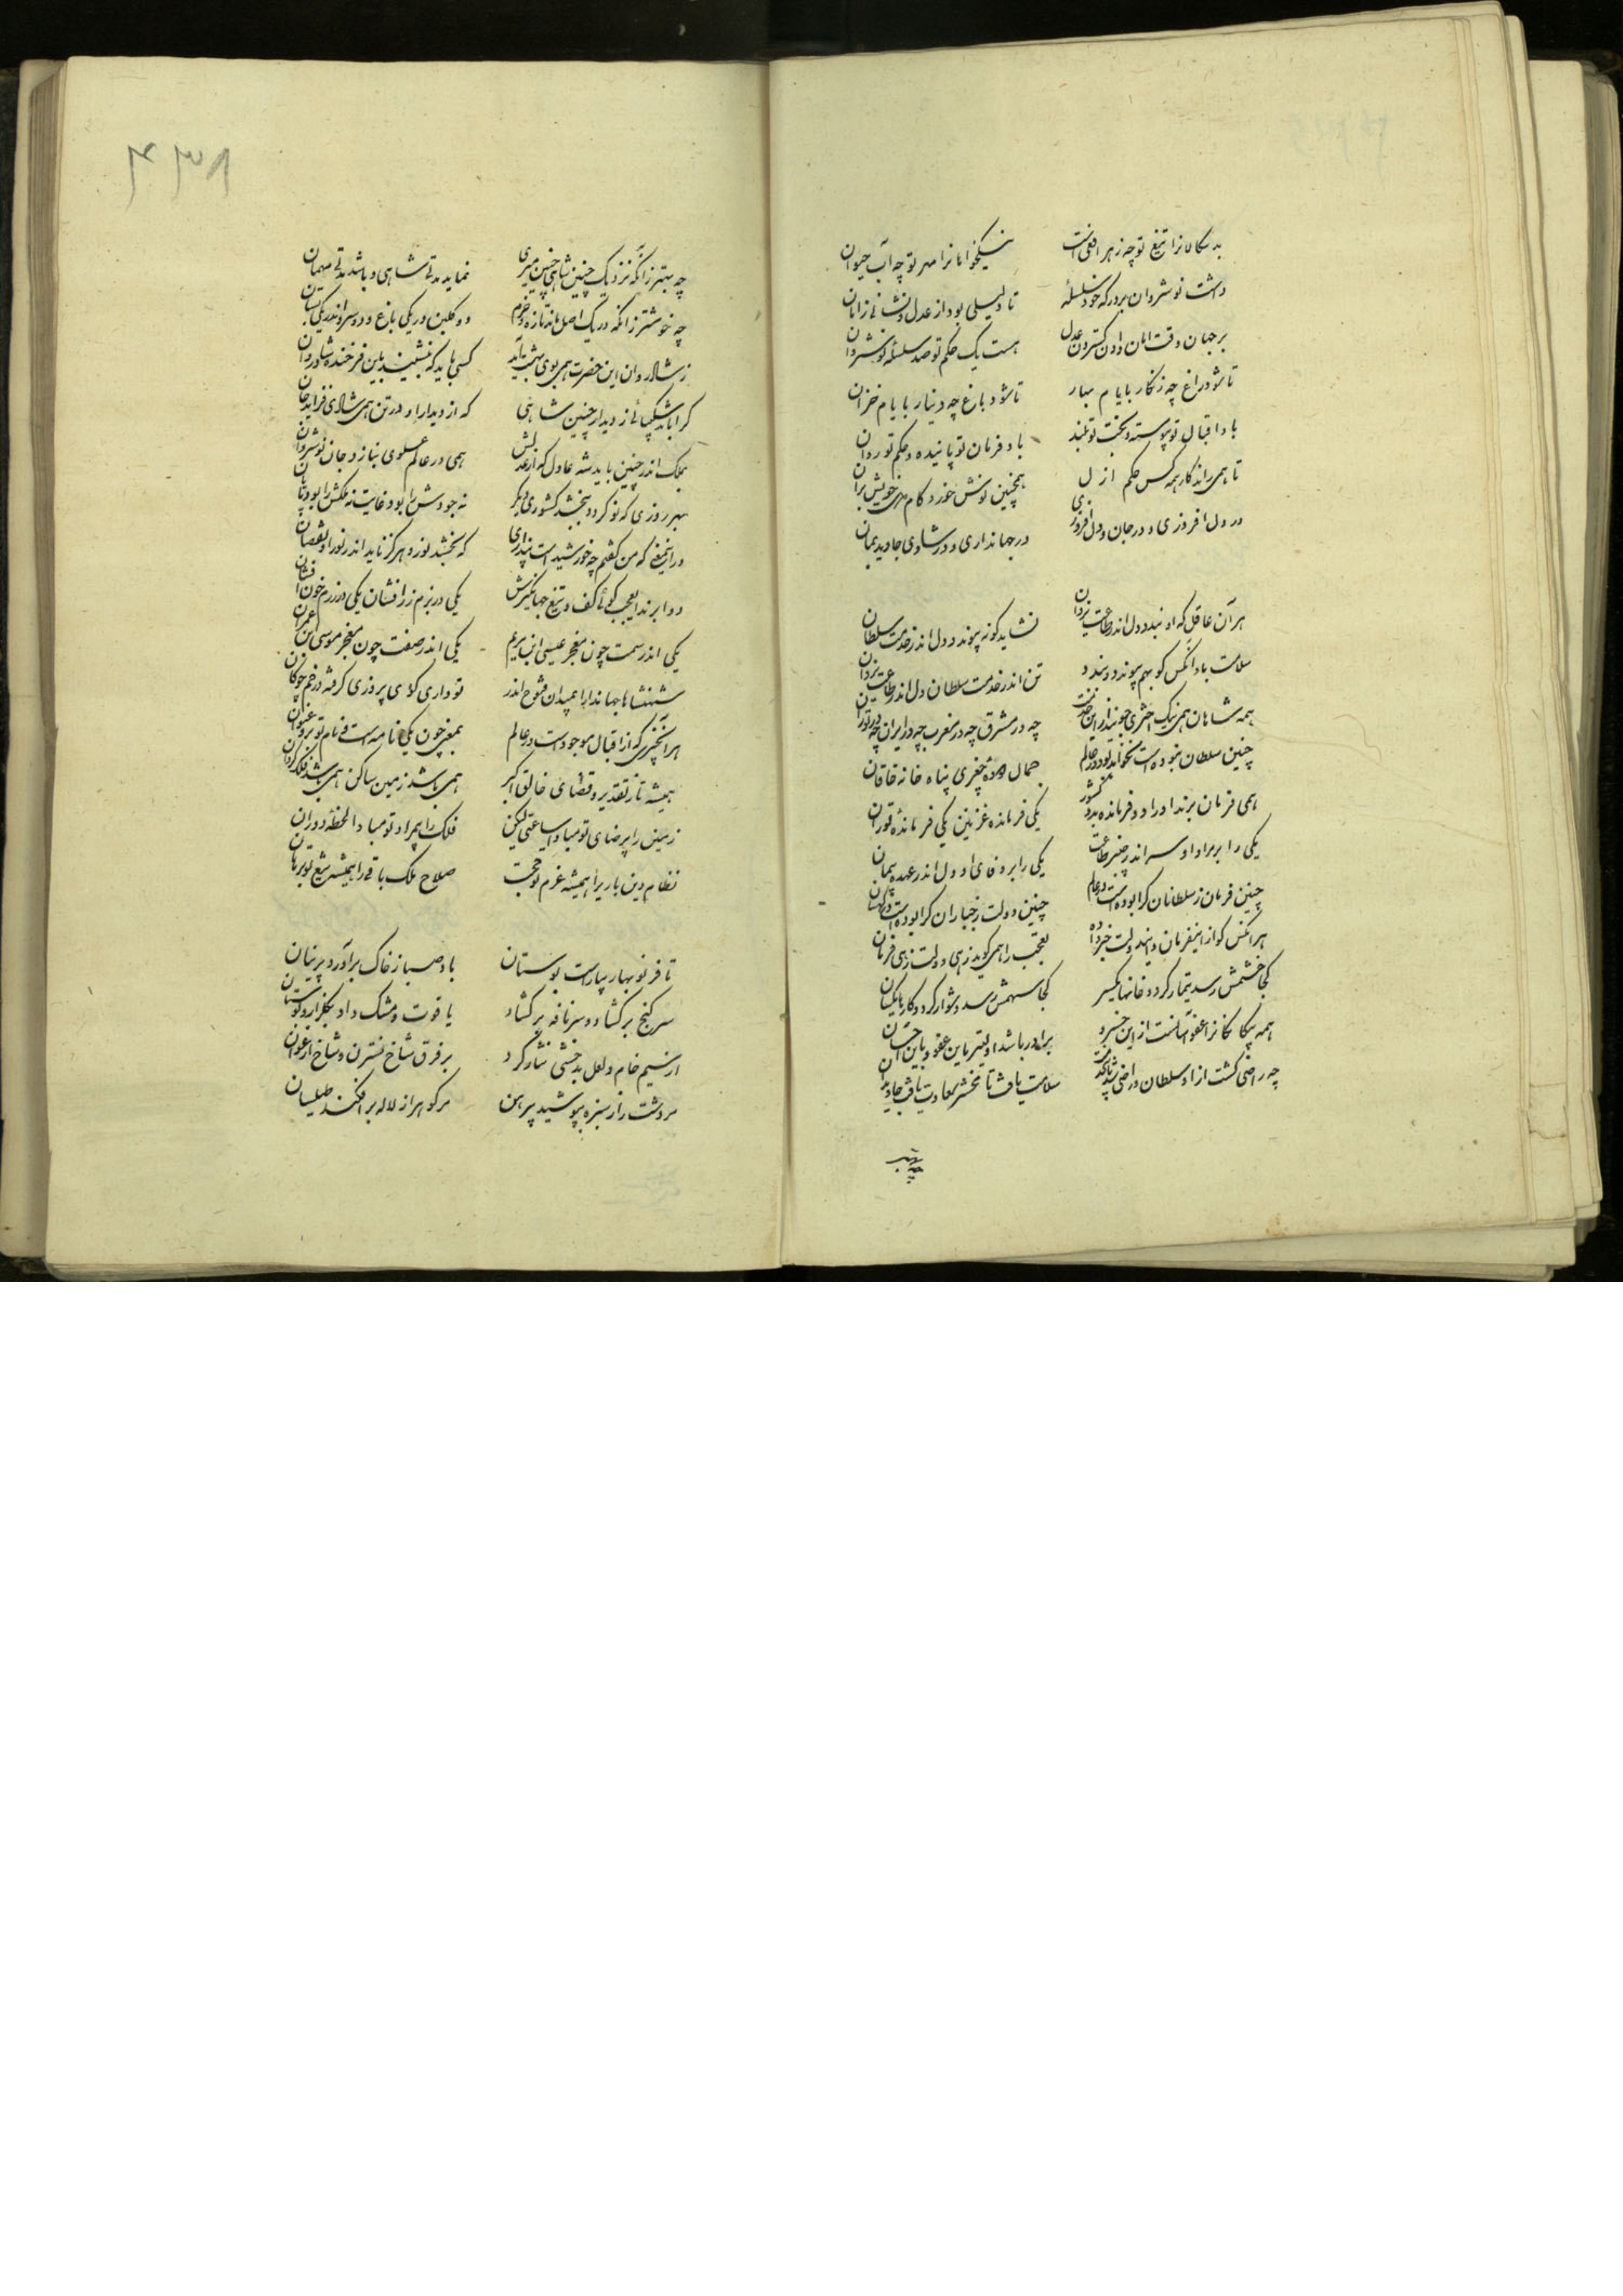 بدسکالانرا تیغ تو چه زهر افعی است نیکخواهانرا مهر تو چه آب حیوان
داشت نوشروان بر درکه خود سلسلهٔ تا دلیلی بود از عدل و نشانی زانان
بر جهان وقت امان دادن و کستردن عدل هست یک حکم تو صد سلسلهٔ نوشروان
تا شود راغ چه زنکار بایام بهار تا شود باغ چه دینار بایام خزان
باد اقبال تو پیوسته و بخت تو بلند باد فرمان تو پاینده و حکم تو روان
تا همی راند کار همه کس حکم ازل همچنین نوش خور و کام دل خویش بران
در دل افروزی و در جان و دل افروز بزی در جهانداری و در شادی جاوید بمان
هر آن عاقل که او بندد دل اندر طاعت یزدان نشاید کو نه پیوندد دل اندر خدمت سلطان
سلامت باد آنکس کو بهم پیوندد و بندد تن اندر خدمت سلطان دل اندر طاعت یزدان
همه شاهان همی نیک اختری جویند ازین خدمت چه در مشرق چه در مغرب چه در ایران چه در توران
چنین سلطان نبوده است و نخواهد بود در عالم جمال دودهٔ چغری پناه خانه خاقان
همی فرمان برند او را دو فرمانده بدو کشور یکی فرمانده غزنین یکی فرماندهٔ توران
یکی را بر مراد او سر اندر چنبر طاعت یکی را بر وفای او دل اندر عهده پیمان
چنین فرمان ز سلطانان کرا بوده است در عالم چنین دولت ز جباران کرا بوده است در کیهان
هر آنکس کو از اینفرمان و ایندولت خبر دارد تعجب را همی کوید زهی دولت زهی فرمان
کجا خشمش رسد تیمار کردد خانها یکسر کجا سهمش رسد دشوار کردد کارها یکسان
همه بیکانکانرا عفو و آسانست از این خسرو برادر باشد اولیتر باین عفو و باین احسان
چه راضی کشت از او سلطان و راضی شد سلامت یافت تا محشر سعادت یافت جاویدان
چه بهتر
۴۳۸
چه بهتر زانکه نزدیک چنین شاهی چنین میری نماید مدتی شاهی و باشد مدتی میهمان
چه خوشتر زانکه در یک اصل ماند تازه و خرم دو کلبن در یکی باغ و دو سرو اندر یکی بستان
ز شادروان این حضرت همی بوی بهشت آید کسی باید که بنشیند بدین فرخنده شادروان
کرا باشد شکیبائی ز دیدار چنین شاهی که از دیدار او در تن همی شادی فزاید جان
بملک اندر چنین باید شه عادل که از عدلش همی در عالم علوی بنازد جان نوشروان
بهر روزی که نو کردد ببخشد کشوری دیکر نه جودش را بود غایت نه ملکش را بود پایان
در اینمعنی که من کفتم چه خورشید است پنداری که بخشد نور و هرکز ناید اندر نور او نقصان
دو ابرند ای عجب کوئی کف و تیغ جهانکیرش یکی در بزم زر افشان یکی در رزم خون افشان
یکی اندر سمت چون معجز عیسی ابن مریم یکی اندر صفت چون معجز موسی بن عمران
شهنشاها جهاندارا بمیدان فتوح اندر تو داری کوی پیروزی کرفته در خم چوکان
هر آنچیزی که از اقبال موجود است در عالم بمعنی چون یکی نامه است و نام تو برو عنوان
همیشه تا ز تقدیر و قضای خالق اکبر همی باشد زمین ساکن همی باشد فلک کردان
زمین را بیرضای تو مبادا ساعتی لیکن فلک را بیمراد تو مبادا لحظهٔ دوران
نظام دین باری را همیشه عزم تو حجت صلاح ملک باقی را همیشه تیغ تو برهان
تا فر نوبهار بیاراست بوستان باد صبا ز خاک برآورد پرنیان
سر کنج برکشاد و سر نافه برکشاد یاقوت و مشک داد بکلزار و کوستان
از سیم خام و لعل بدخشی نثار کرد بر فرق شاخ نسترن و شاخ ارغوان
مر دشت را ز سبزه بپوشید پیرهن مر کوه را ز لاله برافکند طیلسان